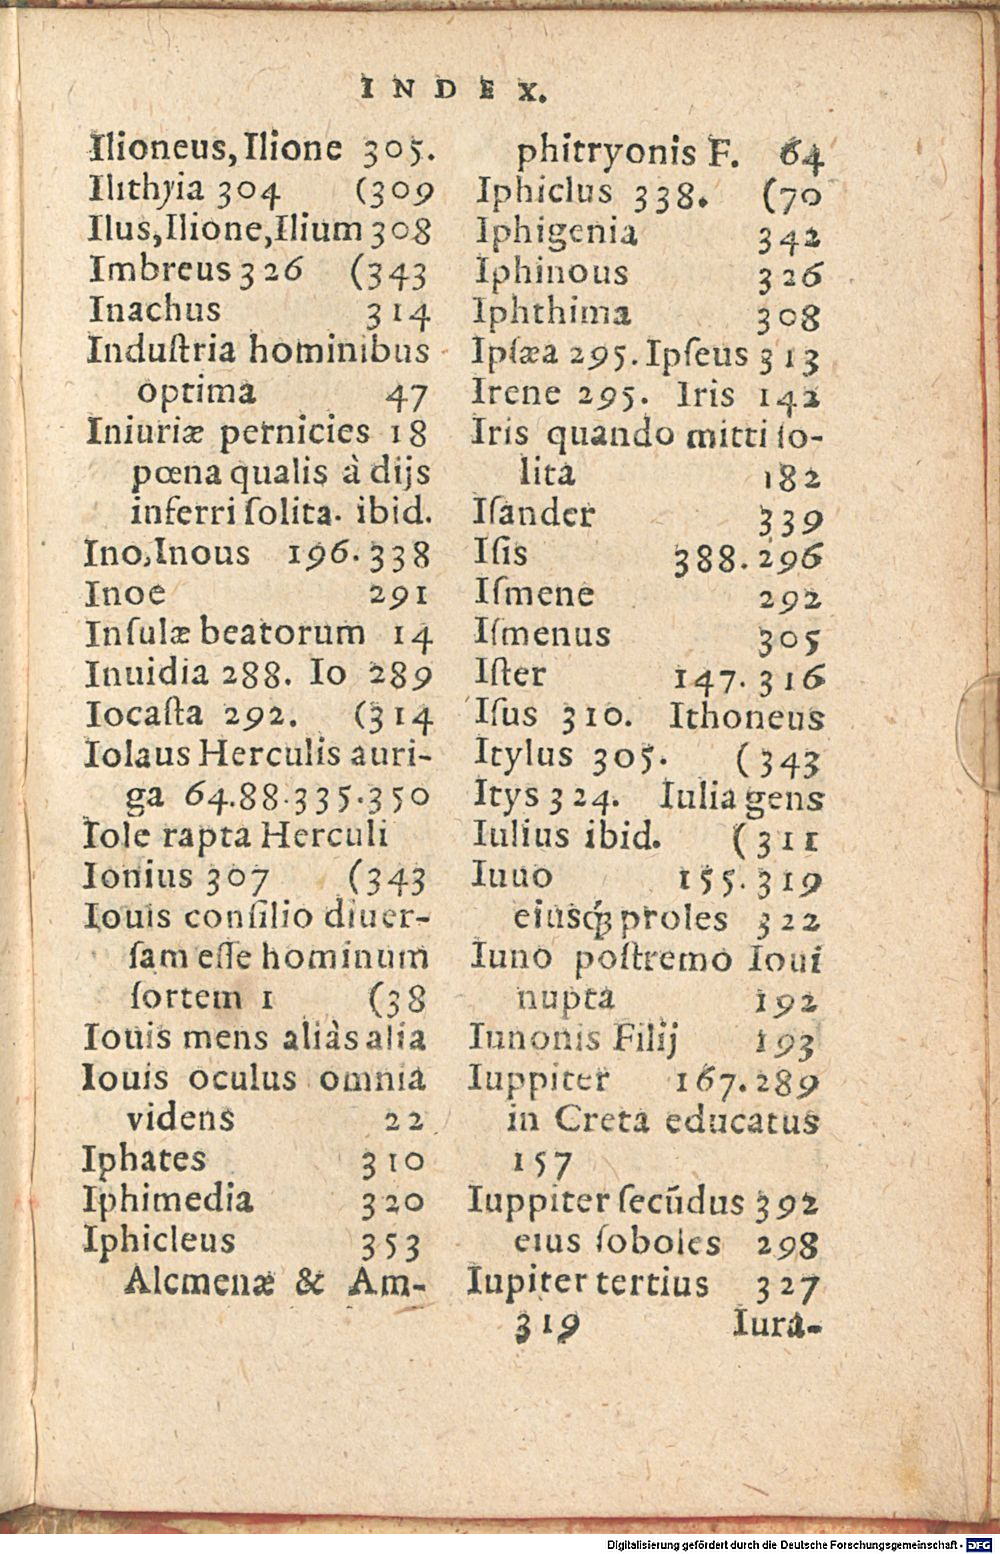 INDEX.
Ilioneus, Ilione 305.
Ilithyia 304 (309
Ilus, Ilione, Ilium 308
Imbreus 326 (343
Inachus 314
Induſtria hominibus
optima 47
Iniuriæ pernicies 18
pœna qualis à dijs
inferri ſolita. ibid.
Ino, Inous 196. 338
Inoe 291
Inſulæ beatorum 14
Inuidia 288. Io 289
Iocaſta 292. (314
Iolaus Herculis auri-
ga 64.88.335.350
Iole rapta Herculi
Ionius 307 (343
Iouis conſilio diuer-
ſam eſſe hominum
ſortem 1 (38
Iouis mens aliàs alia
Iouis oculus omnia
videns 22
Iphates 310
Iphimedia 320
Iphicleus 353
Alcmenæ & Am-
phitryonis F. 64
Iphiclus 338. (70
Iphigenia 342
Iphinous 326
Iphthima 308
Ipſæa 295. Ipſeus 313
Irene 295. Iris 142
Iris quando mitti ſo-
lita 182
Iſander 339
Iſis 388. 296
Iſmene 292
Iſmenus 305
Iſter 147. 316
Iſus 310. Ithoneus
Itylus 305. (343
Itys 324. Iulia gens
Iulius ibid. (311
Iuuo 155. 319
eiusq́ꝫ proles 322
Iuno poſtremo Ioui
nupta 192
Iunonis Filij 193
Iuppiter 167. 289
in Creta educatus
157
Iuppiter ſecūdus 392
eius ſoboles 298
Iupiter tertius 327
319 Iura-
Digitalisierung gefördert durch die Deutsche Forschungsgemeinschaft - DFG